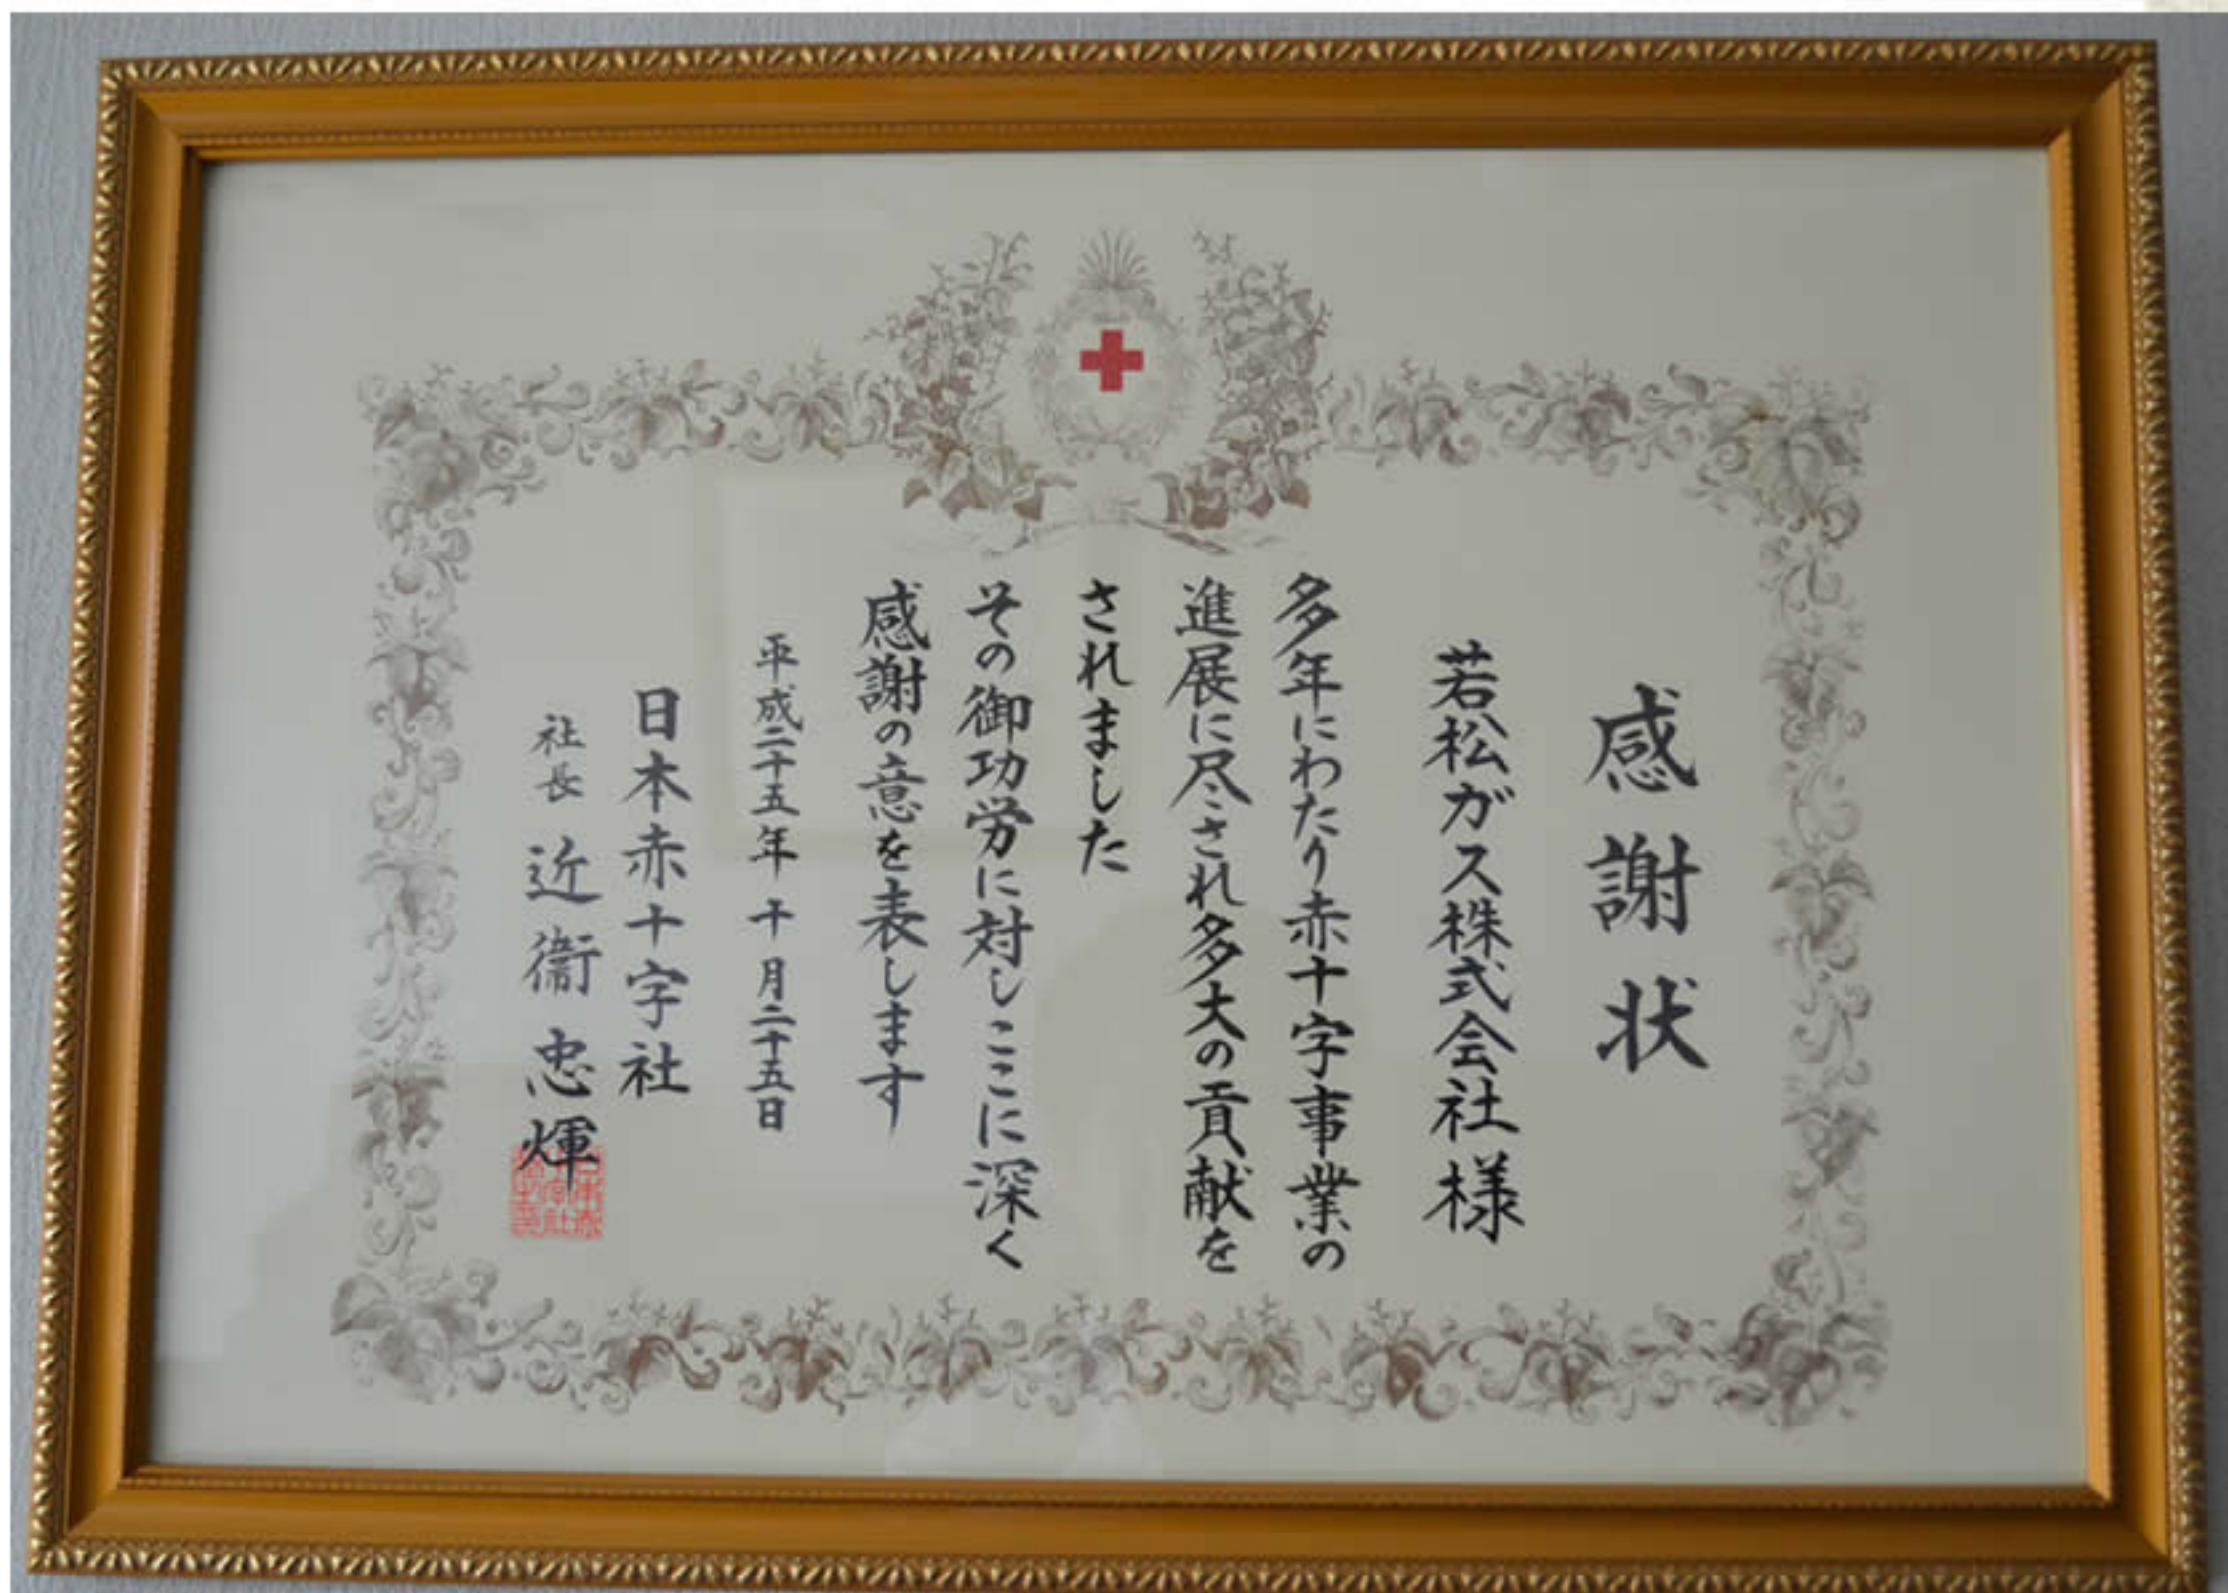 感謝状
若松ガス株式会社様
多年にわたり赤十字事業の
進展に尽され多大の貢献を
されました
その御功労に対しここに深く
感謝の意を表します
平成二十五年十月二十五日
日本赤十字社
社長 近衞忠煇